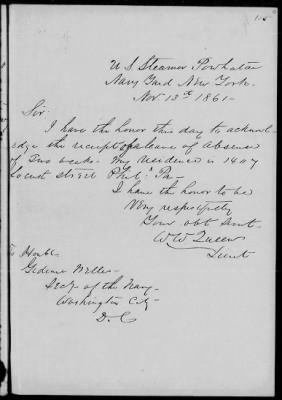 115
U. S. Steamer Powhatan
Navy Yard New York.
Nov. 13th 1861-
Sir.
I have the honor this day to acknowl-
edge the receipt of a leave of absense
of two weeks. My residence is 1407
Locust Street Phila. Pa-
I have the honor to be
Very respectfully
Your obt Servt.
W W Queen
Lieut
To Honble
Gideon Welles-
Secy- of the Navy-
Washington City-
D. C